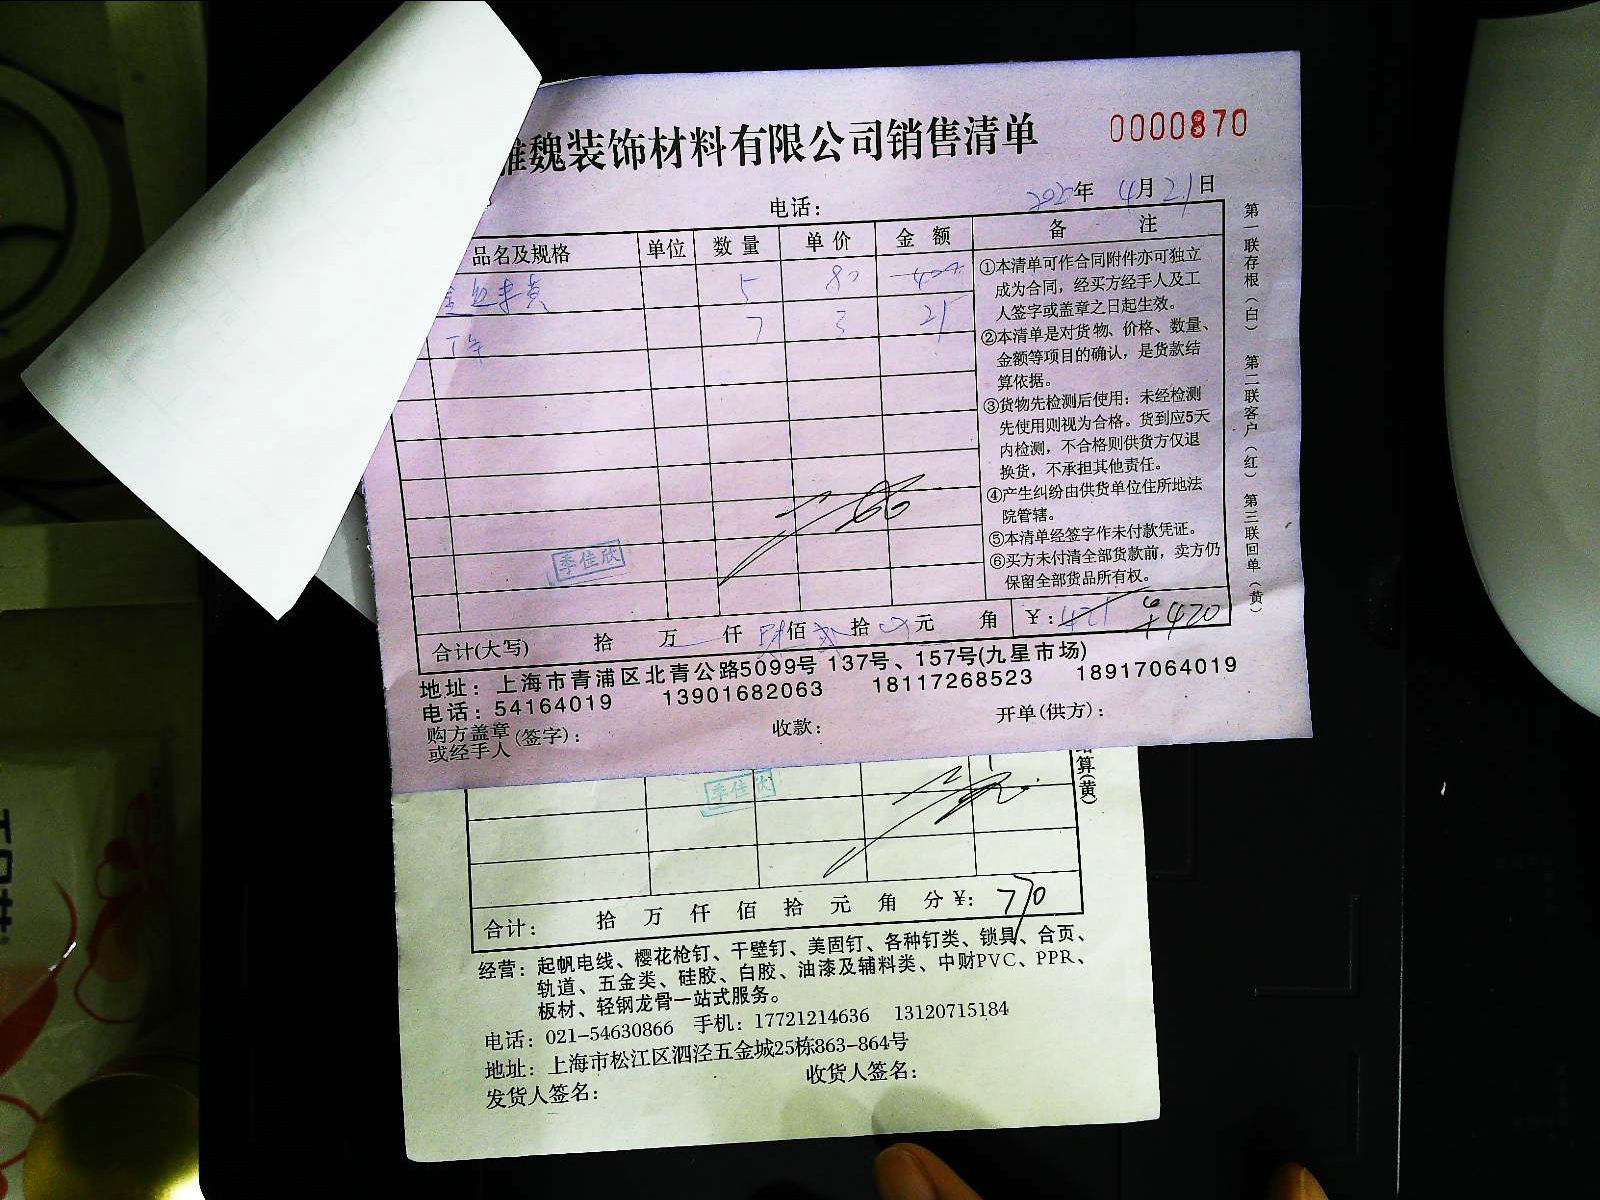 魏装饰材料有限公司销售清单
0000870
年 4月21日
电话:
品名及规格 单位 数量 单价 金额 备注
5 80 400
7 3 21
①本清单可作合同附件亦可独立
成为合同，经买方经手人及工
人签字或盖章之日起生效。
②本清单是对货物、价格、数量、
金额等项目的确认，是货款结
算依据。
③货物先检测后使用：未经检测
先使用则视为合格。货到应5天
内检测，不合格则供货方仅退
换货，不承担其他责任。
④产生纠纷由供货单位住所地法
院管辖。
⑤本清单经签字作未付款凭证。
⑥买方未付清全部货款前，卖方仍
保留全部货品所有权。
第一联存根(白) 第二联客户(红) 第三联回单(黄)
季佳欣
合计(大写) 拾 万 仟 佰 拾 元 角 ¥:421 ¥420
地址：上海市青浦区北青公路5099号 137号、157号(九星市场)
电话：54164019 13901682063 18117268523 18917064019
购方盖章
或经手人 (签字)： 收款： 开单(供方)：
算(黄)
季佳欣
合计： 拾 万 仟 佰 拾 元 角 分 ¥: 770
经营：起帆电线、樱花枪钉、干壁钉、美固钉、各种钉类、锁具、合页、
轨道、五金类、硅胶、白胶、油漆及辅料类、中财PVC、PPR、
板材、轻钢龙骨一站式服务。
电话：021-54630866 手机：17721214636 13120715184
地址：上海市松江区泗泾五金城25栋863-864号
发货人签名： 收货人签名：